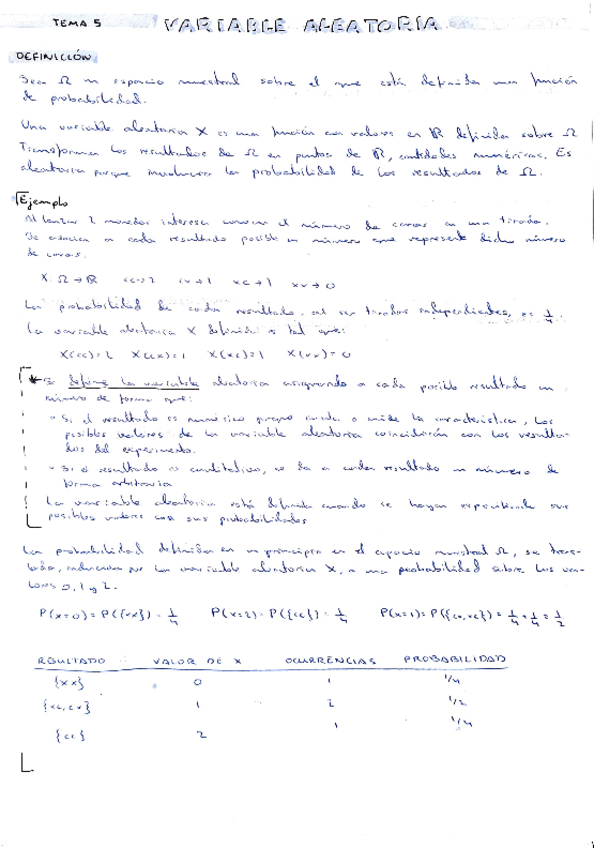 TEMA 5 VARIABLE ALEATORIA
DEFINICIÓN
Sea Ω un espacio muestral sobre el que está definida una función
de probabilidad.
Una variable aleatoria X es una función con valores en ℝ definida sobre Ω
Transforma los resultados de Ω en puntos de ℝ, cantidades numéricas. Es
aleatoria porque involucra la probabilidad de los resultados de Ω.
Ejemplo
Al lanzar 2 monedas interesa conocer el número de caras en una tirada.
Se asocia a cada resultado posible un número que represente dicho número
de caras.
X: Ω → ℝ cc→2 cx→1 xc→1 xx→0
La probabilidad de cada resultado, al ser tiradas independientes, es 1/4.
La variable aleatoria X definida es tal que:
X(cc)=2 X(cx)=1 X(xc)=1 X(xx)=0
Se define la variable aleatoria asignando a cada posible resultado un
número de forma que:
• Si el resultado es numérico porque cuenta o mide la característica, los
posibles valores de la variable aleatoria coincidirán con los resulta-
dos del experimento.
• Si el resultado es cualitativo, se da a cada resultado un número de
forma arbitraria
La variable aleatoria está definida cuando se hayan especificado sus
posibles valores con sus probabilidades
La probabilidad definida en un principio en el espacio muestral Ω, se tras-
lada, inducida por la variable aleatoria X, a una probabilidad sobre los va-
lores 0, 1 y 2.
P(x=0) = P({xx}) = 1/4 P(x=2) = P({cc}) = 1/4 P(x=1) = P({cx, xc}) = 1/4 + 1/4 = 1/2
RSULTADO VALOR DE X OCURRENCIAS PROBABILIDAD
{xx} 0 1 1/4
{xc, cx} 1 2 1/2
{cc} 2 1 1/4